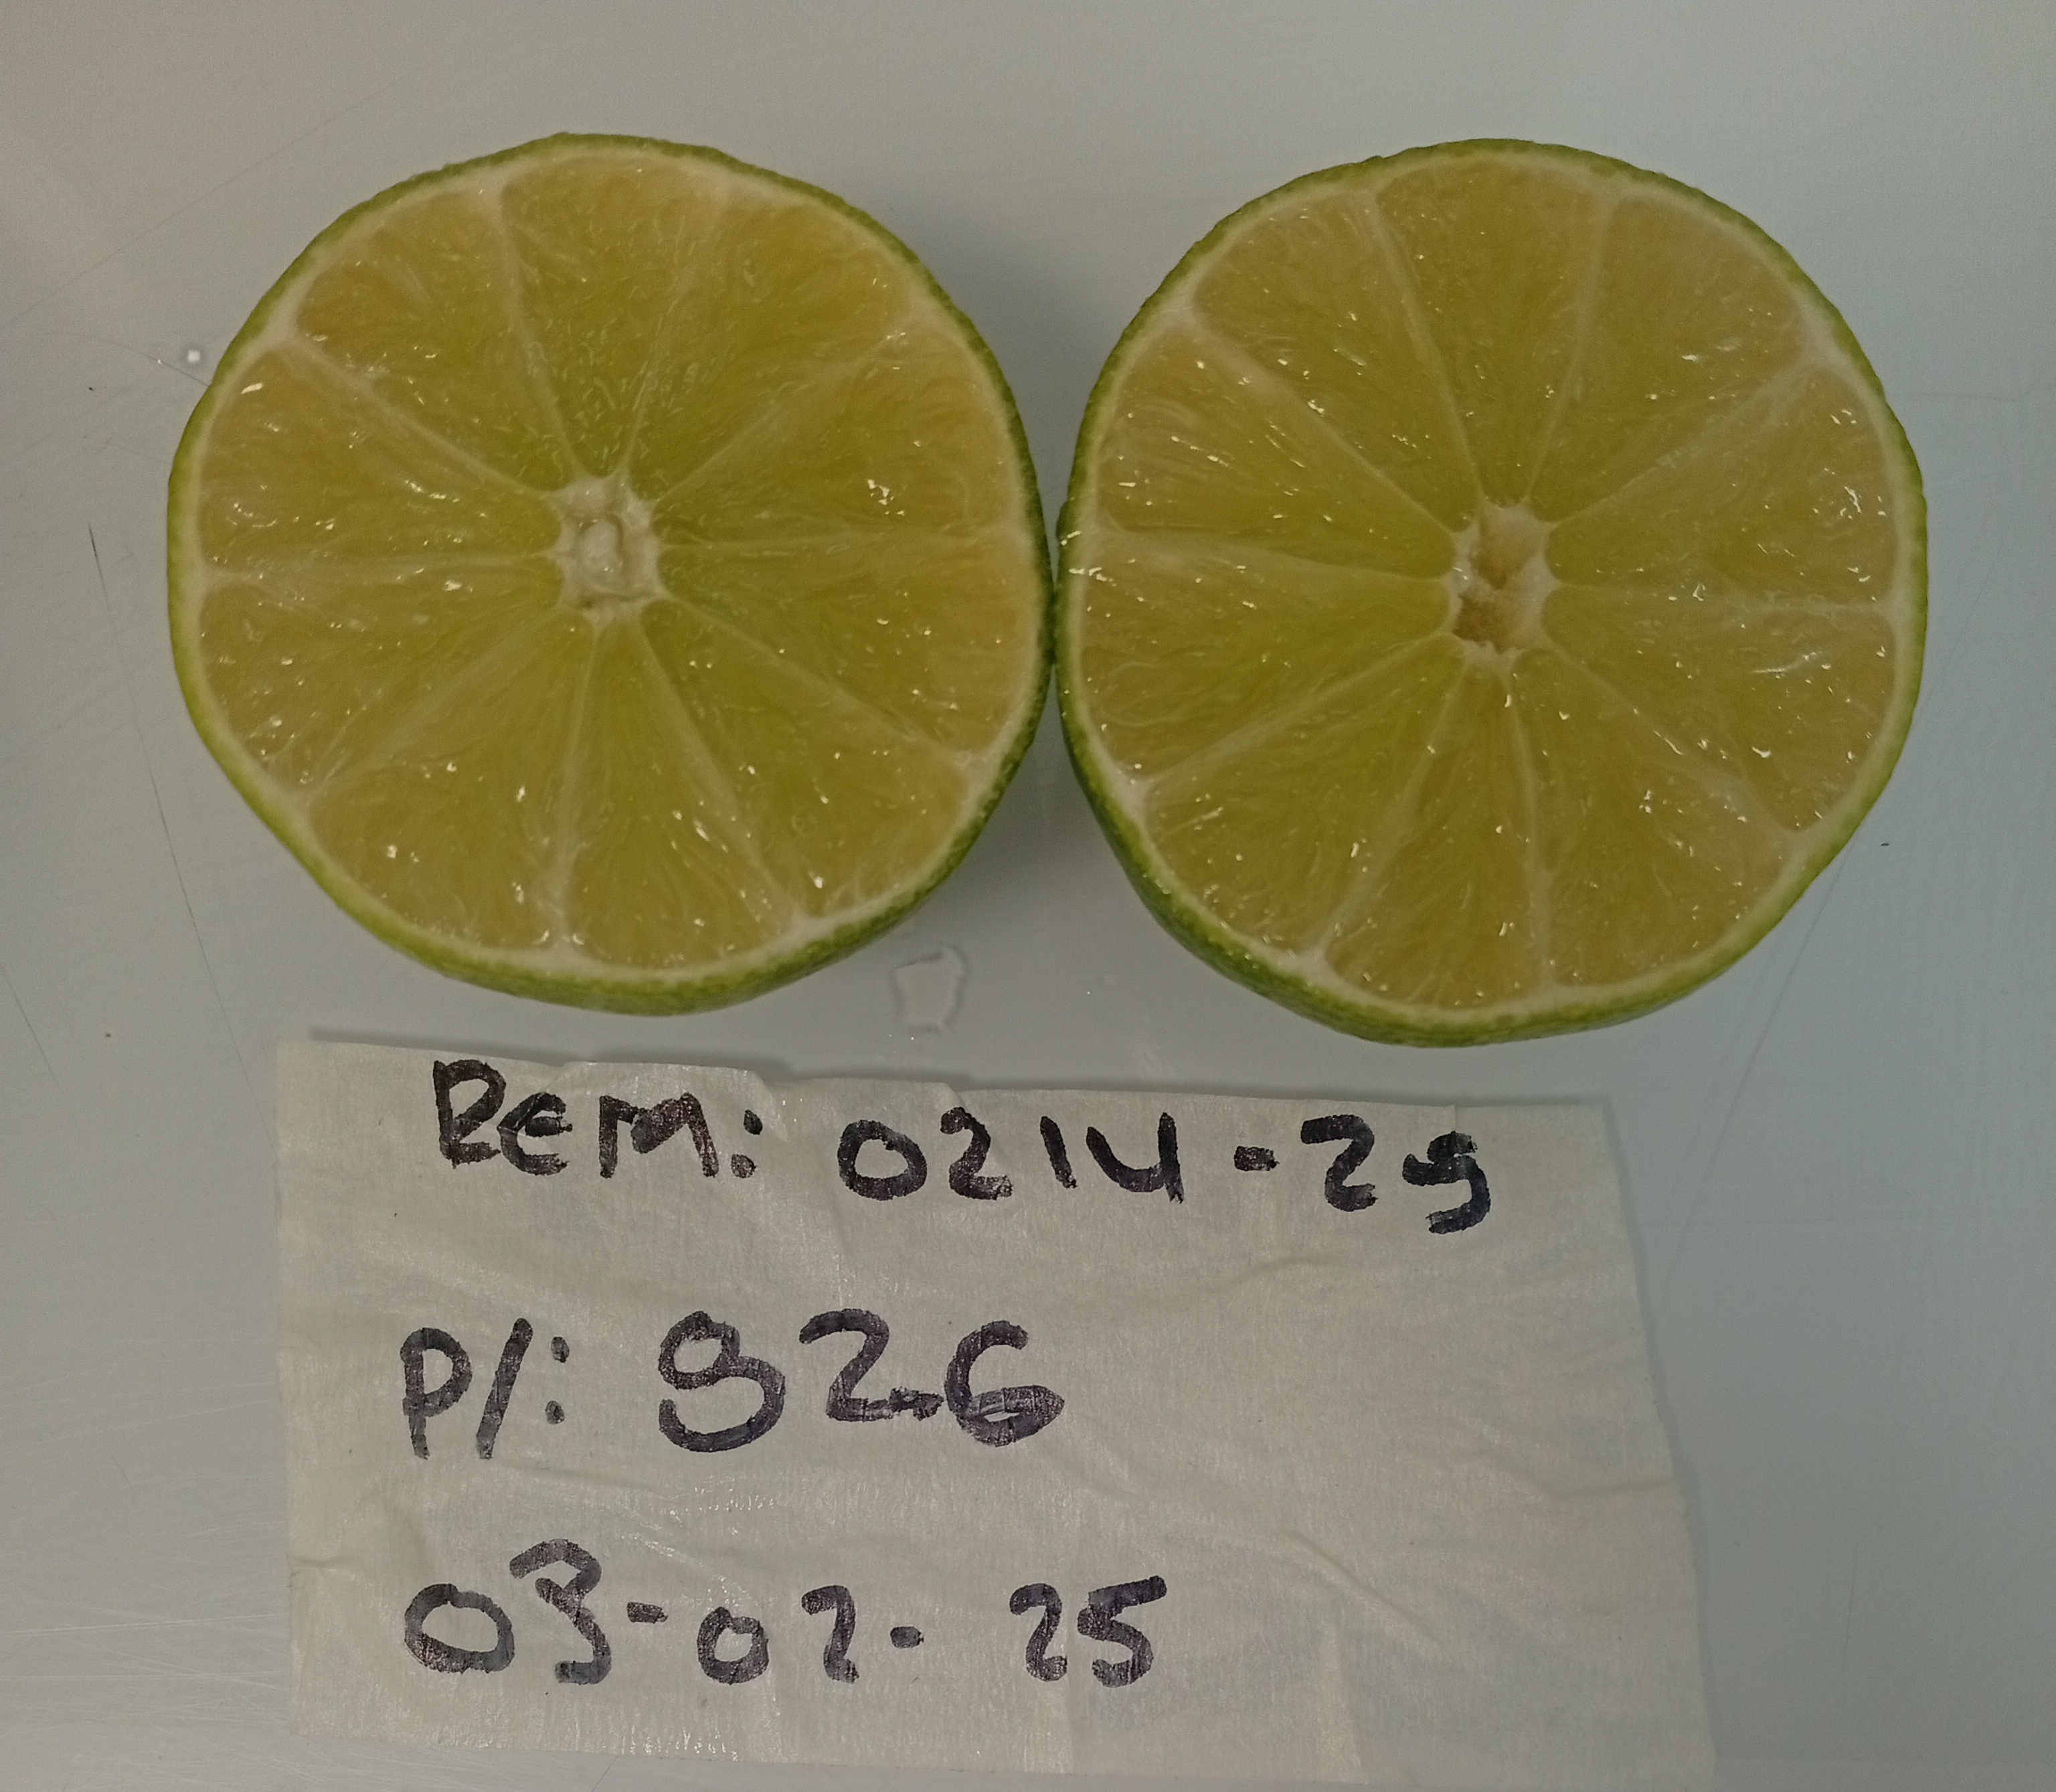 REM: 0214-25
P/: 926
03-02-25